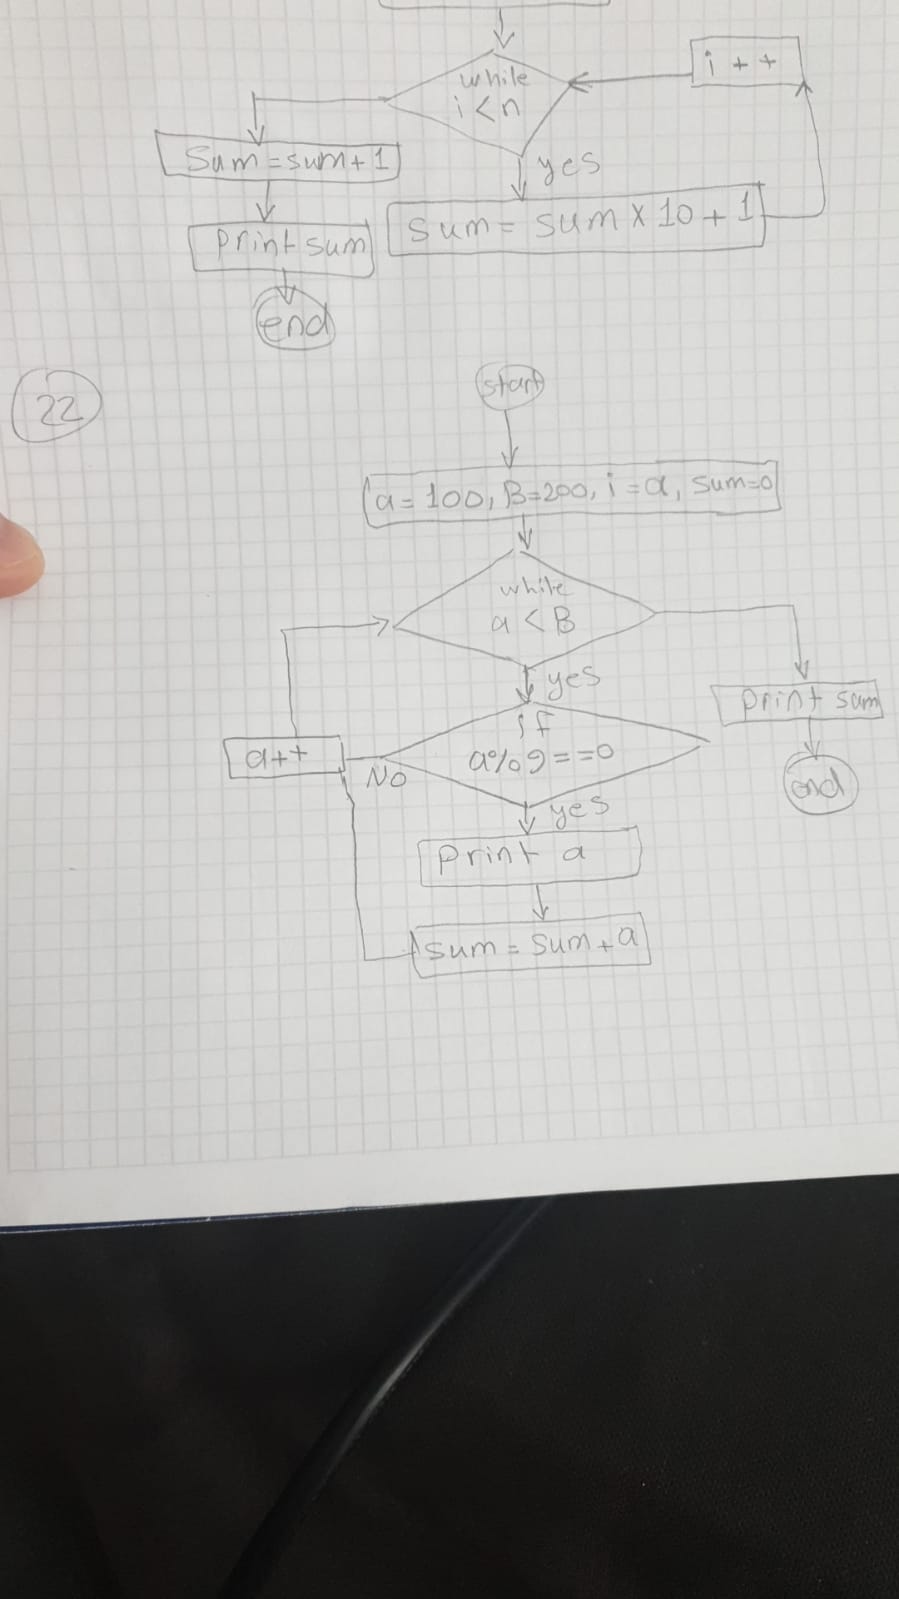 while
i < n
i + +
yes
Sum = sum + 1
Sum = sum x 10 + 1
print sum
end
22
start
a = 100, B=200, i = a, sum=0
while
a < B
yes
print sum
if
a%9==0
a++
No
end
yes
print a
sum = sum + a